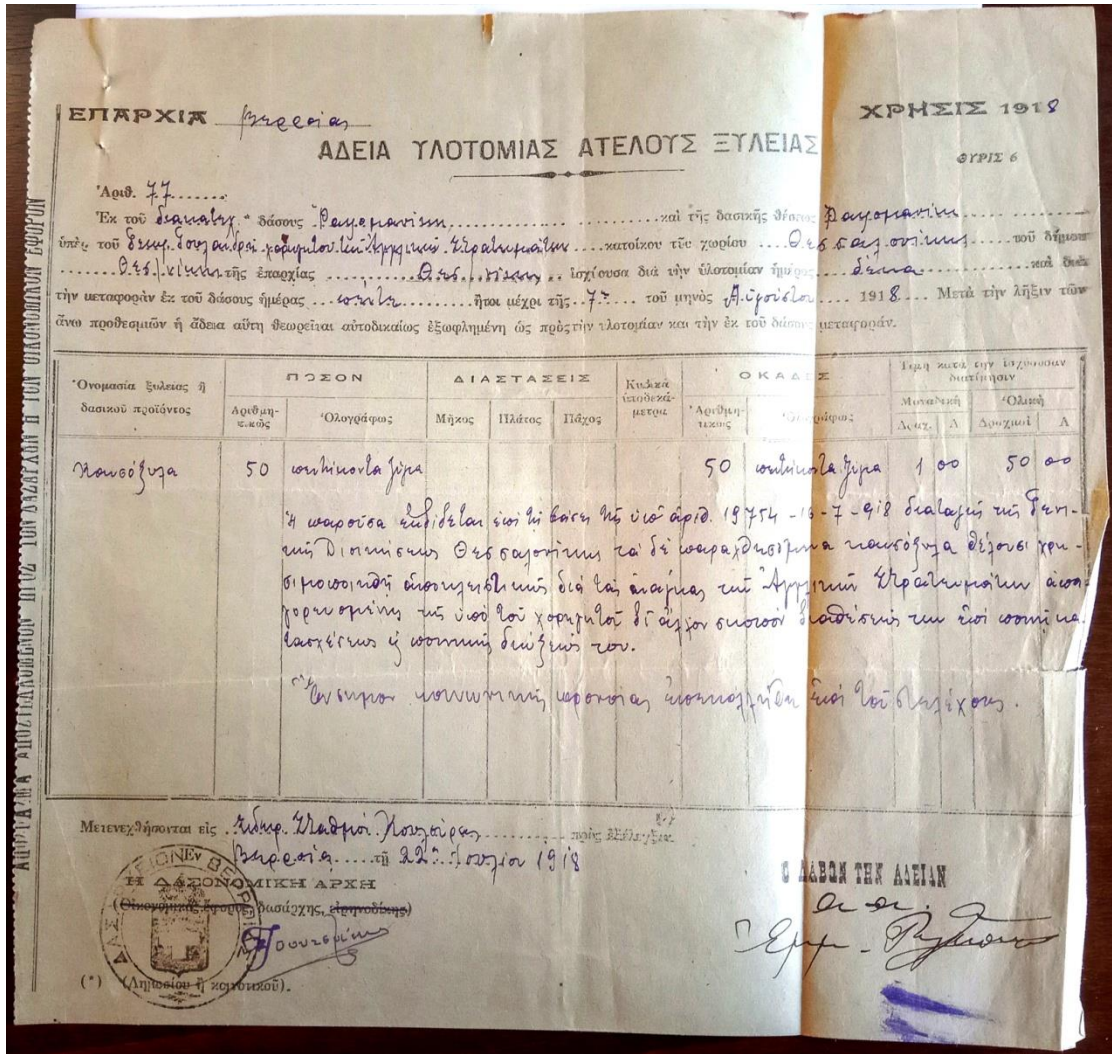 ΕΠΑΡΧΙΑ Βερροίας
ΧΡΗΣΙΣ 1918
ΑΔΕΙΑ ΥΛΟΤΟΜΙΑΣ ΑΤΕΛΟΥΣ ΞΥΛΕΙΑΣ
ΘΥΡΙΣ 6
Ἀριθ. 77
Ἐκ τοῦ δάσους καὶ τῆς δασικῆς θέσεως
ὑπὲρ τοῦ χορηγητοῦ τῶν Ἀγγλικῶν Στρατευμάτων κατοίκου τοῦ χωρίου Θεσσαλονίκης τοῦ δήμου
Θεσ)νίκης τῆς ἐπαρχίας Θεσ)νίκης ἰσχύουσα διὰ τὴν ὑλοτομίαν ἡμέρας δέκα καὶ διὰ
τὴν μεταφορὰν ἐκ τοῦ δάσους ἡμέρας πέντε ἤτοι μέχρι τῆς 7ης τοῦ μηνὸς Αὐγούστου 1918. Μετὰ τὴν λῆξιν τῶν
ἄνω προθεσμιῶν ἡ ἄδεια αὕτη θεωρεῖται αὐτοδικαίως ἐξωφλημένη ὡς πρὸς τὴν ὑλοτομίαν και τὴν ἐκ τοῦ δάσους μεταφοράν.
Ὀνομασία ξυλείας ἢ δασικοῦ προϊόντος
ΠΟΣΟΝ
Ἀριθμητικῶς
Ὁλογράφως
ΔΙΑΣΤΑΣΕΙΣ
Μῆκος
Πλάτος
Πάχος
Κυβικὰ ὑποδεκάμετρα
ΟΚΑΔΕΣ
Ἀριθμητικῶς
Ὁλογράφως
Τιμὴ κατὰ τὴν ἰσχύουσαν διατίμησιν
Μοναδικὴ
Δραχ. Λ
Ὁλικὴ
Δραχμαὶ Λ
Καυσόξυλα 50 πεντήκοντα ζύμα 50 πεντήκοντα ζύμα 1 00 50 00
Ἡ παροῦσα ἐκδίδεται ἐπὶ τῇ βάσει τῆς ὑπ' ἀριθ. 19754 -16-7-918 διαταγῆς τῆς Γενι-
κῆς Διοικήσεως Θεσσαλονίκης τὰ δὲ παραχθησόμενα καυσόξυλα θέλουσι χρη-
σιμοποιηθῆ ἀποκλειστικῶς διὰ τὰς ἀνάγκας τῶν Ἀγγλικῶν Στρατευμάτων ἀπα-
γορευομένης τῆς ὑπὸ τοῦ χορηγητοῦ δι' ἄλλον σκοπὸν διαθέσεώς των ἐπὶ ποινῇ κα-
τασχέσεως ἢ ποινικῆς διώξεώς του.
Ἔνσημον κοινωνικῆς προνοίας ἐπεκολλήθη ἐπὶ τοῦ στελέχους.
Μετενεχθήσονται εἰς Σιδηρ. Σταθμὸν πρὸς ἐξέλεγξιν
Βερροίᾳ τῇ 22ᾳ Ἰουλίου 1918
Η ΔΑΣΟΝΟΜΙΚΗ ΑΡΧΗ
(Οἰκονομικὸς ἔφορος, δασάρχης, εἰρηνοδίκης)
Ο ΛΑΒΩΝ ΤΗΝ ΑΔΕΙΑΝ
(*) (Δημοσίου ἢ κοινοτικοῦ).